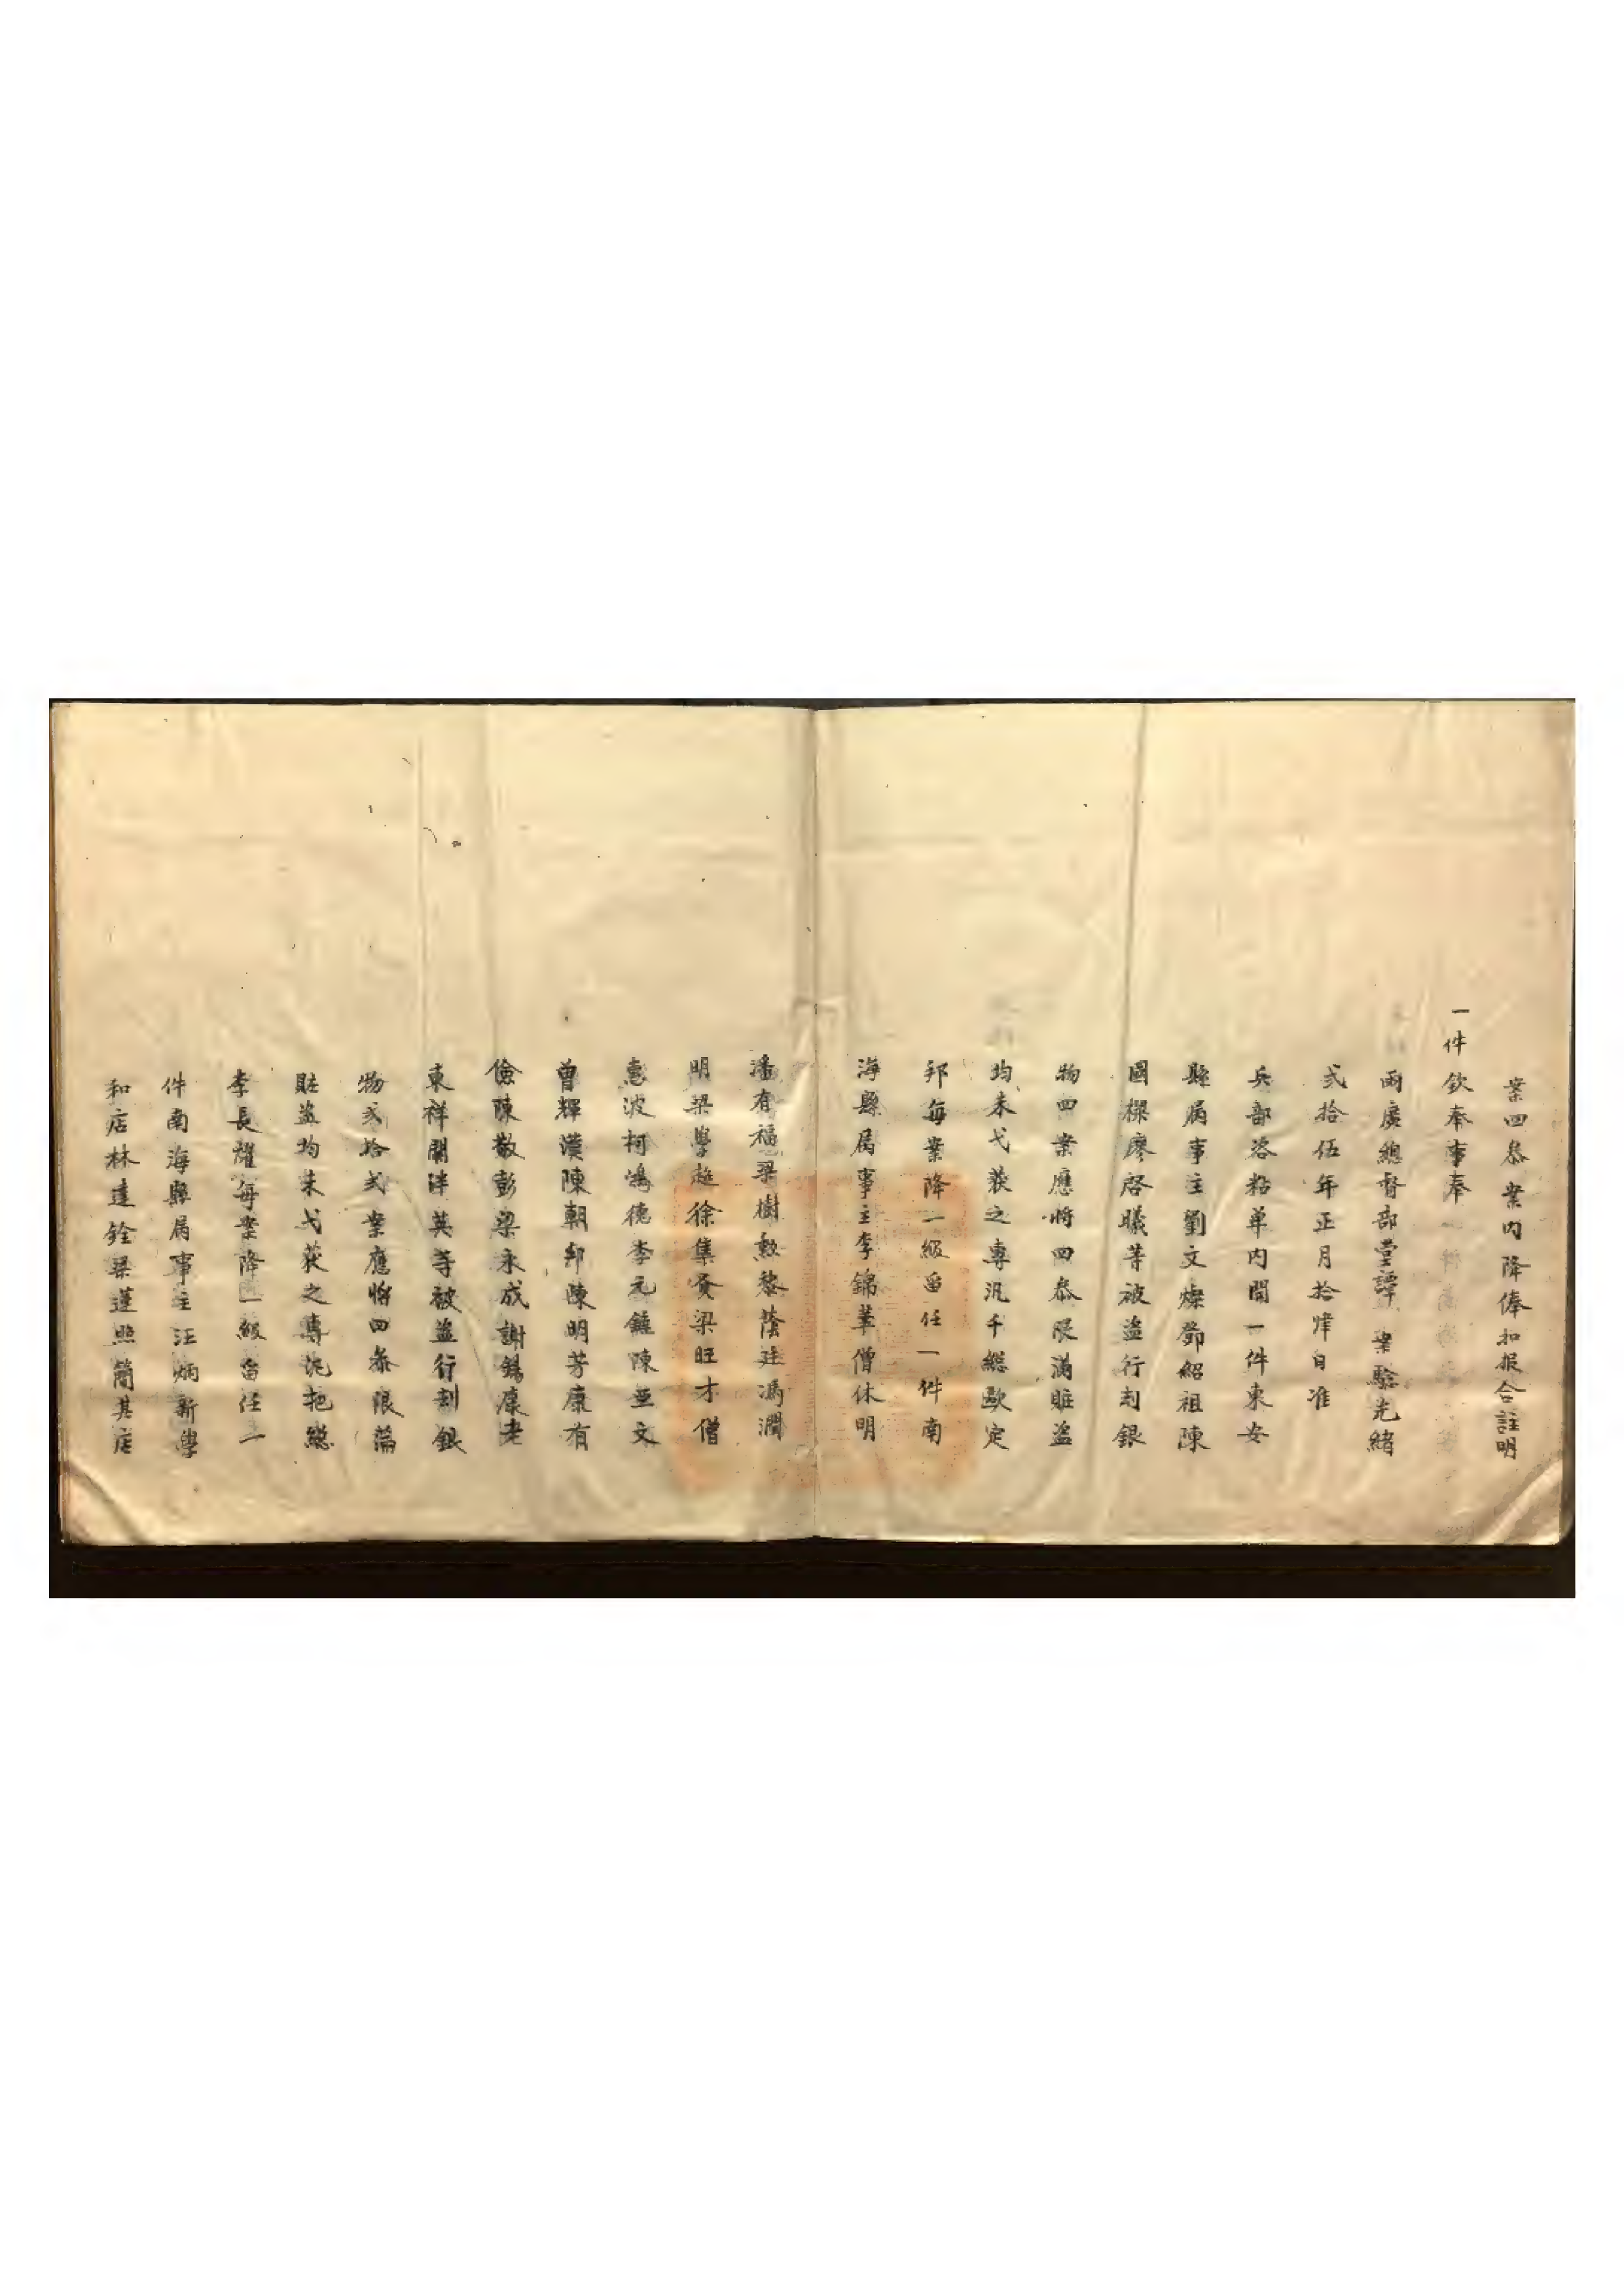 案四叅案内降俸扣报合註明
一件欽奉事奉
兩廣總督部堂譚 案驗光緒
弍拾伍年正月拾肆日准
兵部咨粘单内開一件東安
縣属事主劉文燦鄧紹祖陳
國樑廖啓曦等被盗行刦銀
物四案應将四叅限滿賍盗
均未弋获之専汛千総歐定
邦每案降一級畄任一件南
海縣属事主李錦華僧休明
潘有福梁樹勲黎蔭廷馮潤
明梁學超徐集賢梁旺才僧
惠波柯鴻德李元鍾陳亜文
曽輝漢陳朝卸陳明芳康有
儉陳敬彭梁永成謝錫康老
東祥關泮英等被盗行刦銀
物弍拾弍案應将四叅限滿
賍盗均未弋获之專汛把総
李長耀每案降一級畄任一
件南海縣属事主汪炳新學
和店林達銓梁蓮照簡其店